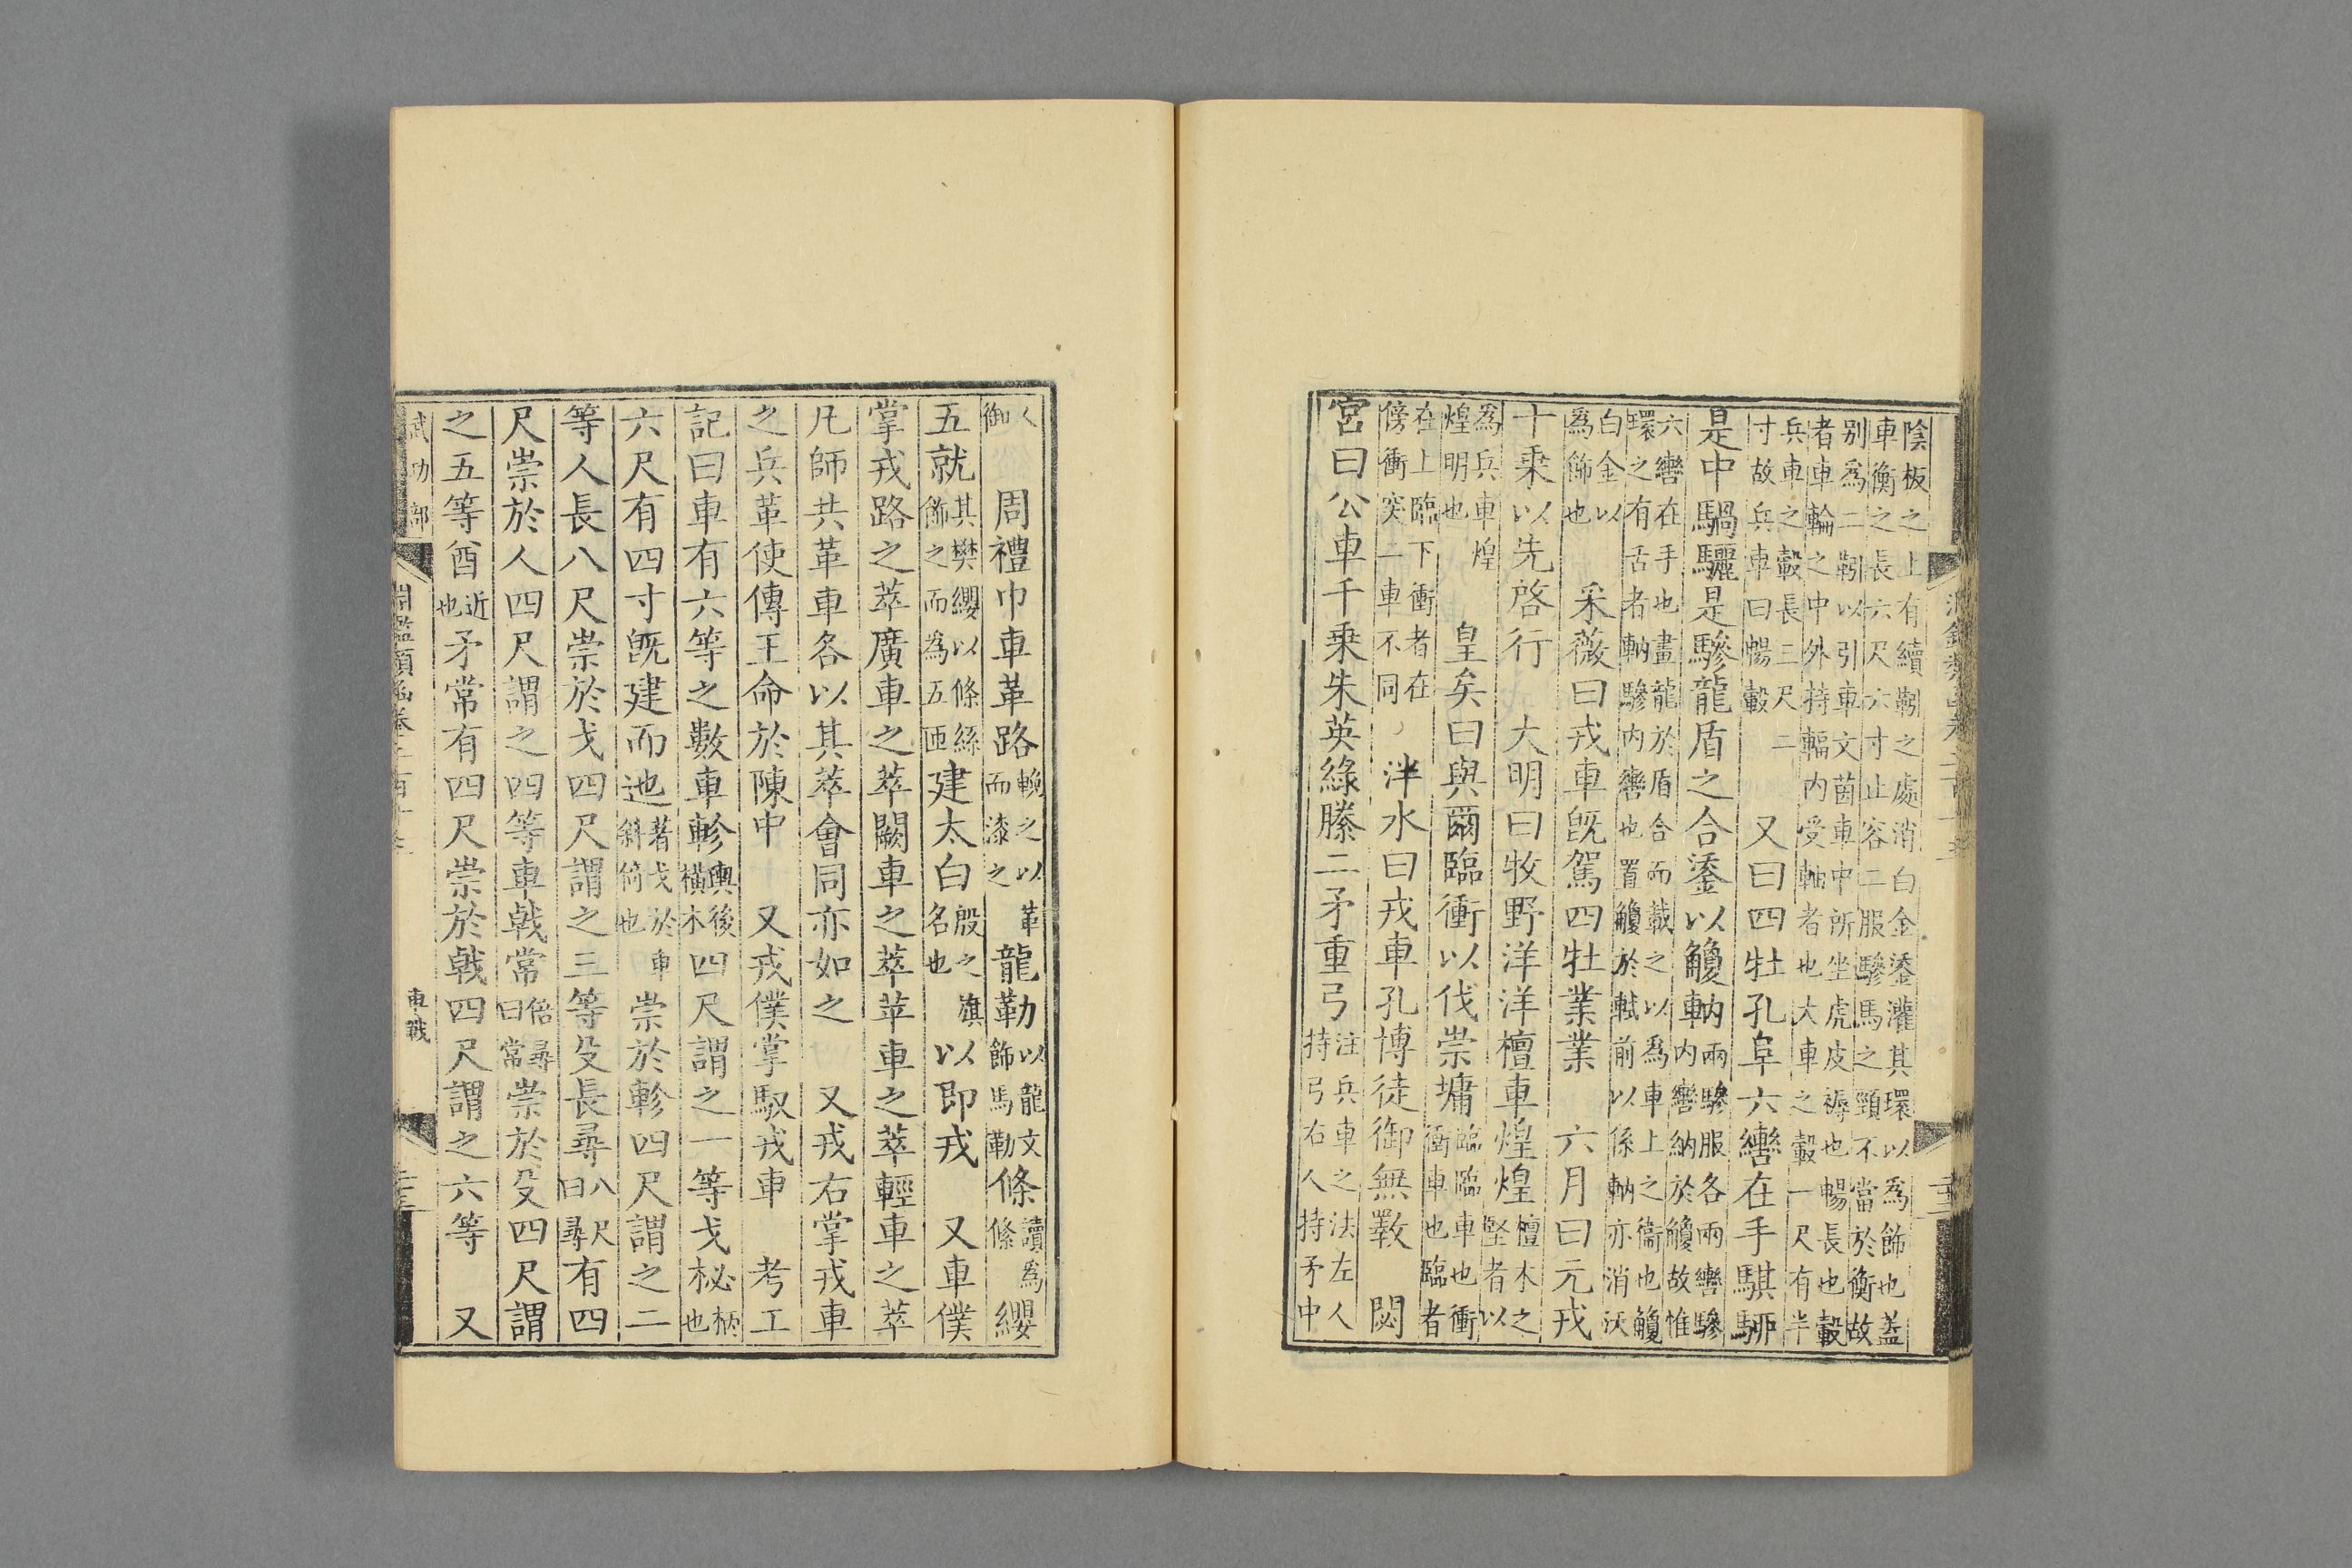 陰板之上有續靷之處消白金鋈灌其環以爲飾也蓋
車衡之長六尺六寸止容二服驂馬之頸不當於衡故
别爲二靷以引車文茵車中所坐虎皮褥也暢長也轂
者車輪之中外持輻内受軸者也大車之轂一尺有半
兵車之轂長三尺二
寸故兵車曰暢轂
又曰四牡孔阜六轡在手騏駵
是中騧驪是驂龍盾之合鋈以觼軜
兩驂服各兩轡驂
内轡納於觼故惟
六轡在手也畫龍於盾合而載之以爲車上之衞也觼
環之有舌者軜驂内轡也置觼於軾前以係軜亦消沃
白金以
爲飾也
采薇曰戎車旣駕四牡業業
六月曰元戎
十乗以先啓行
大明曰牧野洋洋檀車煌煌
檀木之
堅者以
爲兵車煌
煌明也
皇矣曰與爾臨衝以伐崇墉
臨臨車也衝
衝車也臨者
在上臨下衝者在
傍衝突二車不同
泮水曰戎車孔博徒御無斁
閟
宮曰公車千乗朱英綠縢二矛重弓
注兵車之法左人
持弓右人持矛中
人
御
周禮巾車革路
輓之以革
而漆之
龍勒
以龍文
飾馬勒
條
讀爲
絛
纓
五就
其樊纓以條絲
飾之而爲五匝
建太白
殷之旗
名也
以即戎
又車僕
掌戎路之萃廣車之萃闕車之萃苹車之萃輕車之萃
凡師共革車各以其萃會同亦如之
又戎右掌戎車
之兵革使傳王命於陳中
又戎僕掌馭戎車
考工
記曰車有六等之數車軫
輿後
横木
四尺謂之一等戈柲
柄
也
六尺有四寸旣建而迆
著戈於車
斜倚也
崇於軫四尺謂之二
等人長八尺崇於戈四尺謂之三等殳長尋
八尺
曰尋
有四
尺崇於人四尺謂之四等車戟常
倍尋
曰常
崇於殳四尺謂
之五等酋
近
也
矛常有四尺崇於戟四尺謂之六等
又
武功部
淵鑑類函卷二百十
車戰